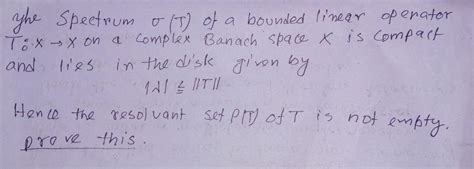 The Spectrum σ(T) of a bounded linear operator
T: X → X on a complex Banach space X is compact
and lies in the disk given by
|λ| ≤ ||T||
Hence the resolvant set ρ(T) of T is not empty.
prove this.